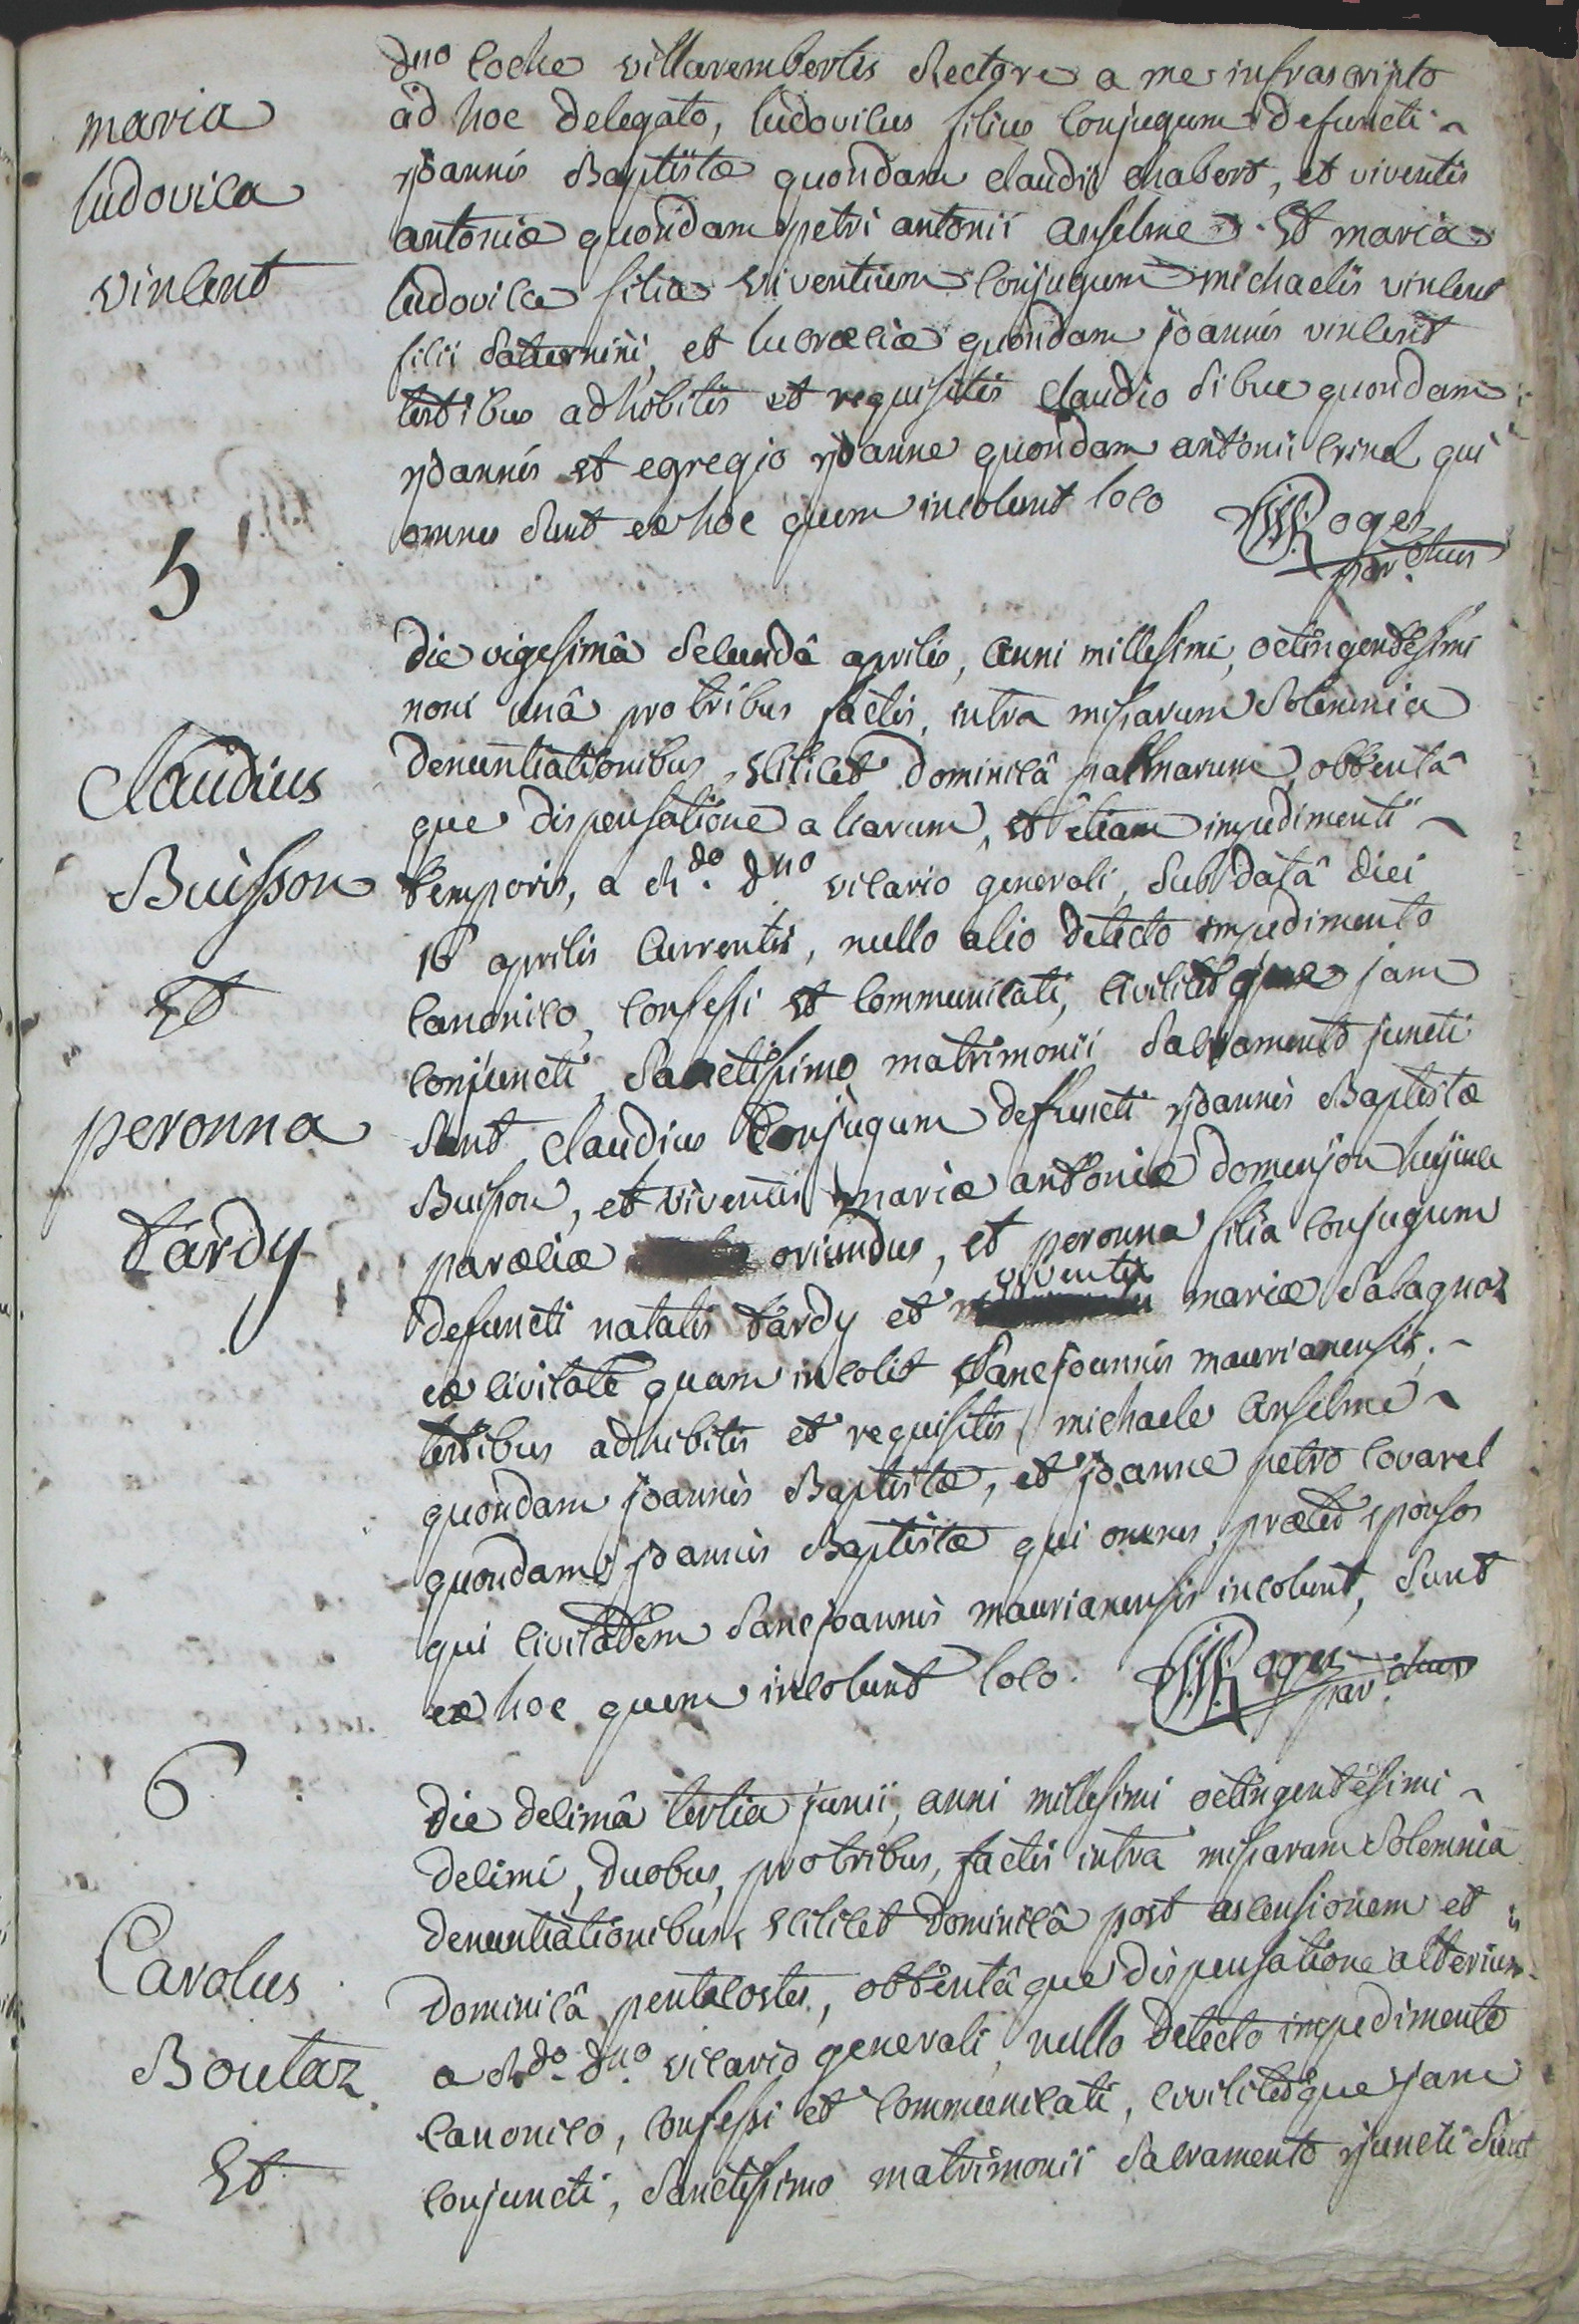 maria
ludovica
vincent
dno coche villarembertis Rectore a me infrascripto
ad hoc delegato, ludovicus filius conjugum defuncti
joannis Baptistæ quondam claudii chabert, et viventis
antoniæ quondam petri antonii anselme. Et maria
ludovica filia viventium conjugum michaelis vincent
filii Saturnini, et lucræciæ quondam joannis vincent
testibus adhibitis et requisitis claudio Sibue quondam
joannis et egregio joanne quondam antonii crinel qui
omnes sunt ex hoc quem incolunt loco JMRoges
par.chus
5
Claudius
Buisson
Et
peronna
tardy
die vigesimâ secundâ aprilis, anni millesimi, octingentesimi
noni unâ pro tribus factis, intra missarum solemnia
denuntiationibus, scilicet dominicâ palmarum, obtentâ
que dispensatione aliarum, et etiam impedimenti
temporis, a Rdo. dno vicario generali, sub datâ diei
16 aprilis currentis, nullo alio detecto impedimento
canonico, confessi et communicati, civiliterque jam
conjuncti, sanctissimo matrimonii sacramento juncti
sunt claudius conjugum defuncti joannis Baptistæ
Buisson, et viventis mariæ antoniæ domenjon hujusce
paræciæ oriundus, et peronna filia conjugum
defuncti natalis tardy et viventis mariæ Salagnoz
ex civitate quam incolit Sancjoannis maurianensis.
testibus adhibitis et requisitis, michaele anselme
quondam joannis Baptistæ, et joanne petro covarel
quondam joannis Baptistæ qui omnes, præter sponsos
qui civitatem Sancjoannis maurianensis incolunt, sunt
ex hoc quem incolunt loco. JMRoges
par.chus
6
Carolus
Boutaz
Et
die decimâ tertia junii, anni millesimi octingentesimi
decimi, duobus, pro tribus, factis intra missarum solemnia
denuntiationibus, scilicet dominicâ post ascensionem et
dominicâ pentecostes, obtentâque dispensatione alterius
a Rdo. dno. vicario generali, nullo detecto impedimento
canonico, confessi et communicati, civiliterque jam
conjuncti, sanctissimo matrimonii sacramento juncti sunt